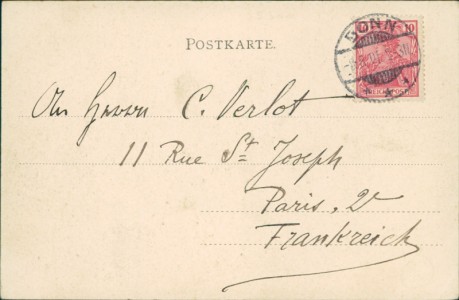 POSTKARTE.
BONN
10
REICHSPOST
An Herrn C. Verlot
11 Rue St Joseph
Paris. 2e
Frankreich